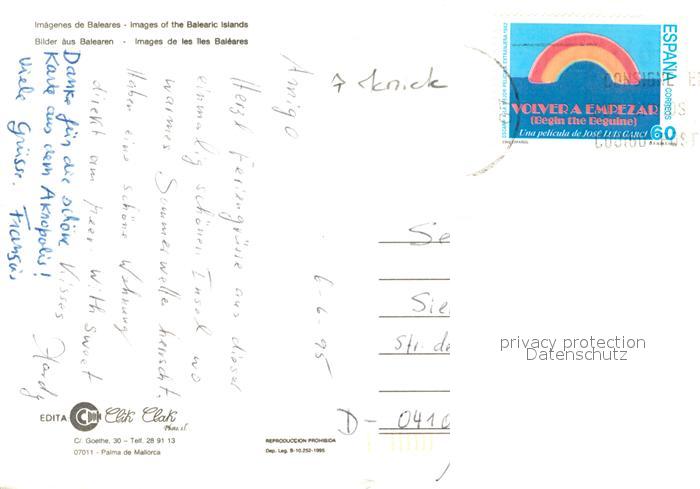 Imágenes de Baleares - Images of the Balearic Islands
Bilder aus Balearen - Images de les îles Baléares
Amigo
Herzl. Feriengrüsse aus dieser
einmalig schönen Insel wo
warmes Sommerwelle herrscht.
Haben eine schöne Wohnung
direkt am Meer. With sweet
Kisses Hardy
6-6-95
Danke für die schöne
Karte aus dem Akropolis!
Viele Grüsse. François
ESPAÑA
CORREOS
VOLVER A EMPEZAR
(Begin the Beguine)
Una película de JOSÉ LUIS GARCI
60
CINE ESPAÑOL
Se
Sie
Str. de
D - 0410
privacy protection
Datenschutz
EDITA: Clik Clak
C/. Goethe, 30 - Telf. 28 91 13
07011 - Palma de Mallorca
REPRODUCCION PROHIBIDA
Dep. Leg. B-10.252-1995